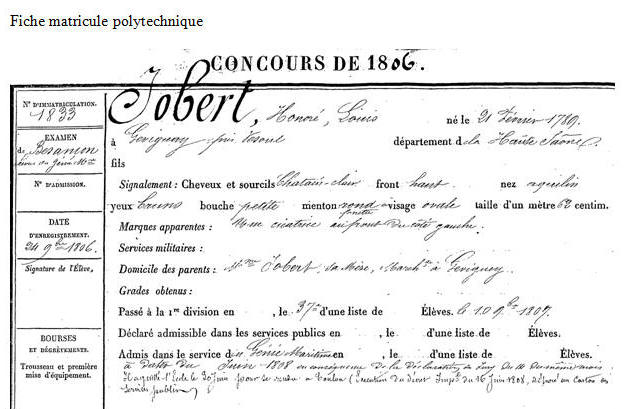 Fiche matricule polytechnique
CONCOURS DE 1806.
Jobert, Honoré, Louis
né le 21 Février 1789
à Gevigney près Vesoul
département d de la Haute Saône
fils
Signalement : Cheveux et sourcils Chatain clair front haut nez aquilin
yeux bruns bouche petite menton rond visage ovale taille d'un mètre 62 centim.
Marques apparentes : Une cicatrice au front du côté gauche.
Services militaires :
Domicile des parents : Jobert, sa Mère, March. à Gevigney.
Grades obtenus :
Passé à la 1re division en , le 37e d'une liste de Élèves. le 10 9bre 1807.
Déclaré admissible dans les services publics en , le d'une liste de Élèves.
Admis dans le service du Génie Maritime , le d'une liste de Élèves.
à Dater du Juin 1808 en de la Déclaration
l'École le 20 Juin pour se rendre à Toulon (Exécution du Décret Impal du 16 Juin 1808,
service public
No D'IMMATRICULATION.
1833
EXAMEN
de Besançon
No D'ADMISSION.
DATE
D'ENREGISTREMENT.
24 9bre 1806.
Signature de l'Élève.
BOURSES
ET DÉGRÈVEMENTS.
Trousseau et première
mise d'équipement.